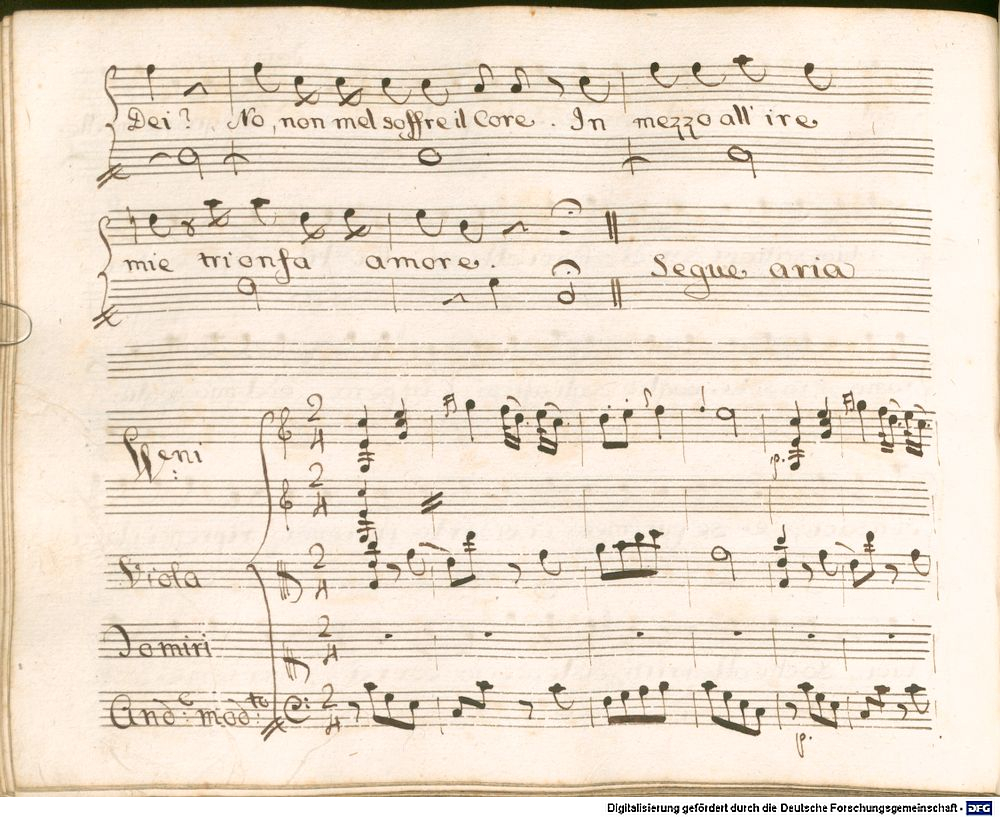 Dei? No, non mel soffre il Core. In mezzo all' ire
mie trionfa amore.
Segue aria
2/4
Weni
2/4
Viola 2/4
Domiri 2/4
p.
And.e mod.to 2/4
p.
Digitalisierung gefördert durch die Deutsche Forschungsgemeinschaft - DFG